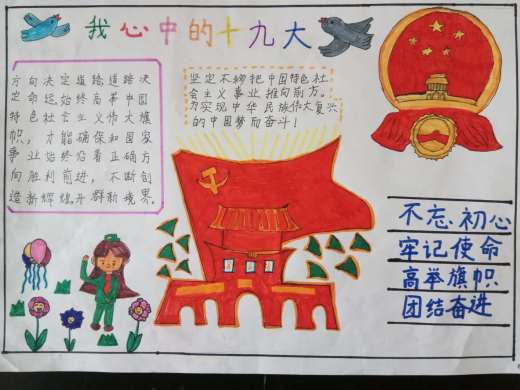 我心中的十九大
方向决定道路,道路决
定命运始终高举中国
特色社会主义伟大旗
帜,才能确保和国家
事业始终沿着正确方
向胜利前进,不断创
造新辉煌,开辟新境界.
坚定不移把中国特色社
会主义事业推向前方.
为实现中华民族伟大复兴
的中国梦而奋斗!
不忘、初心
牢记使命
高举旗帜
团结奋进